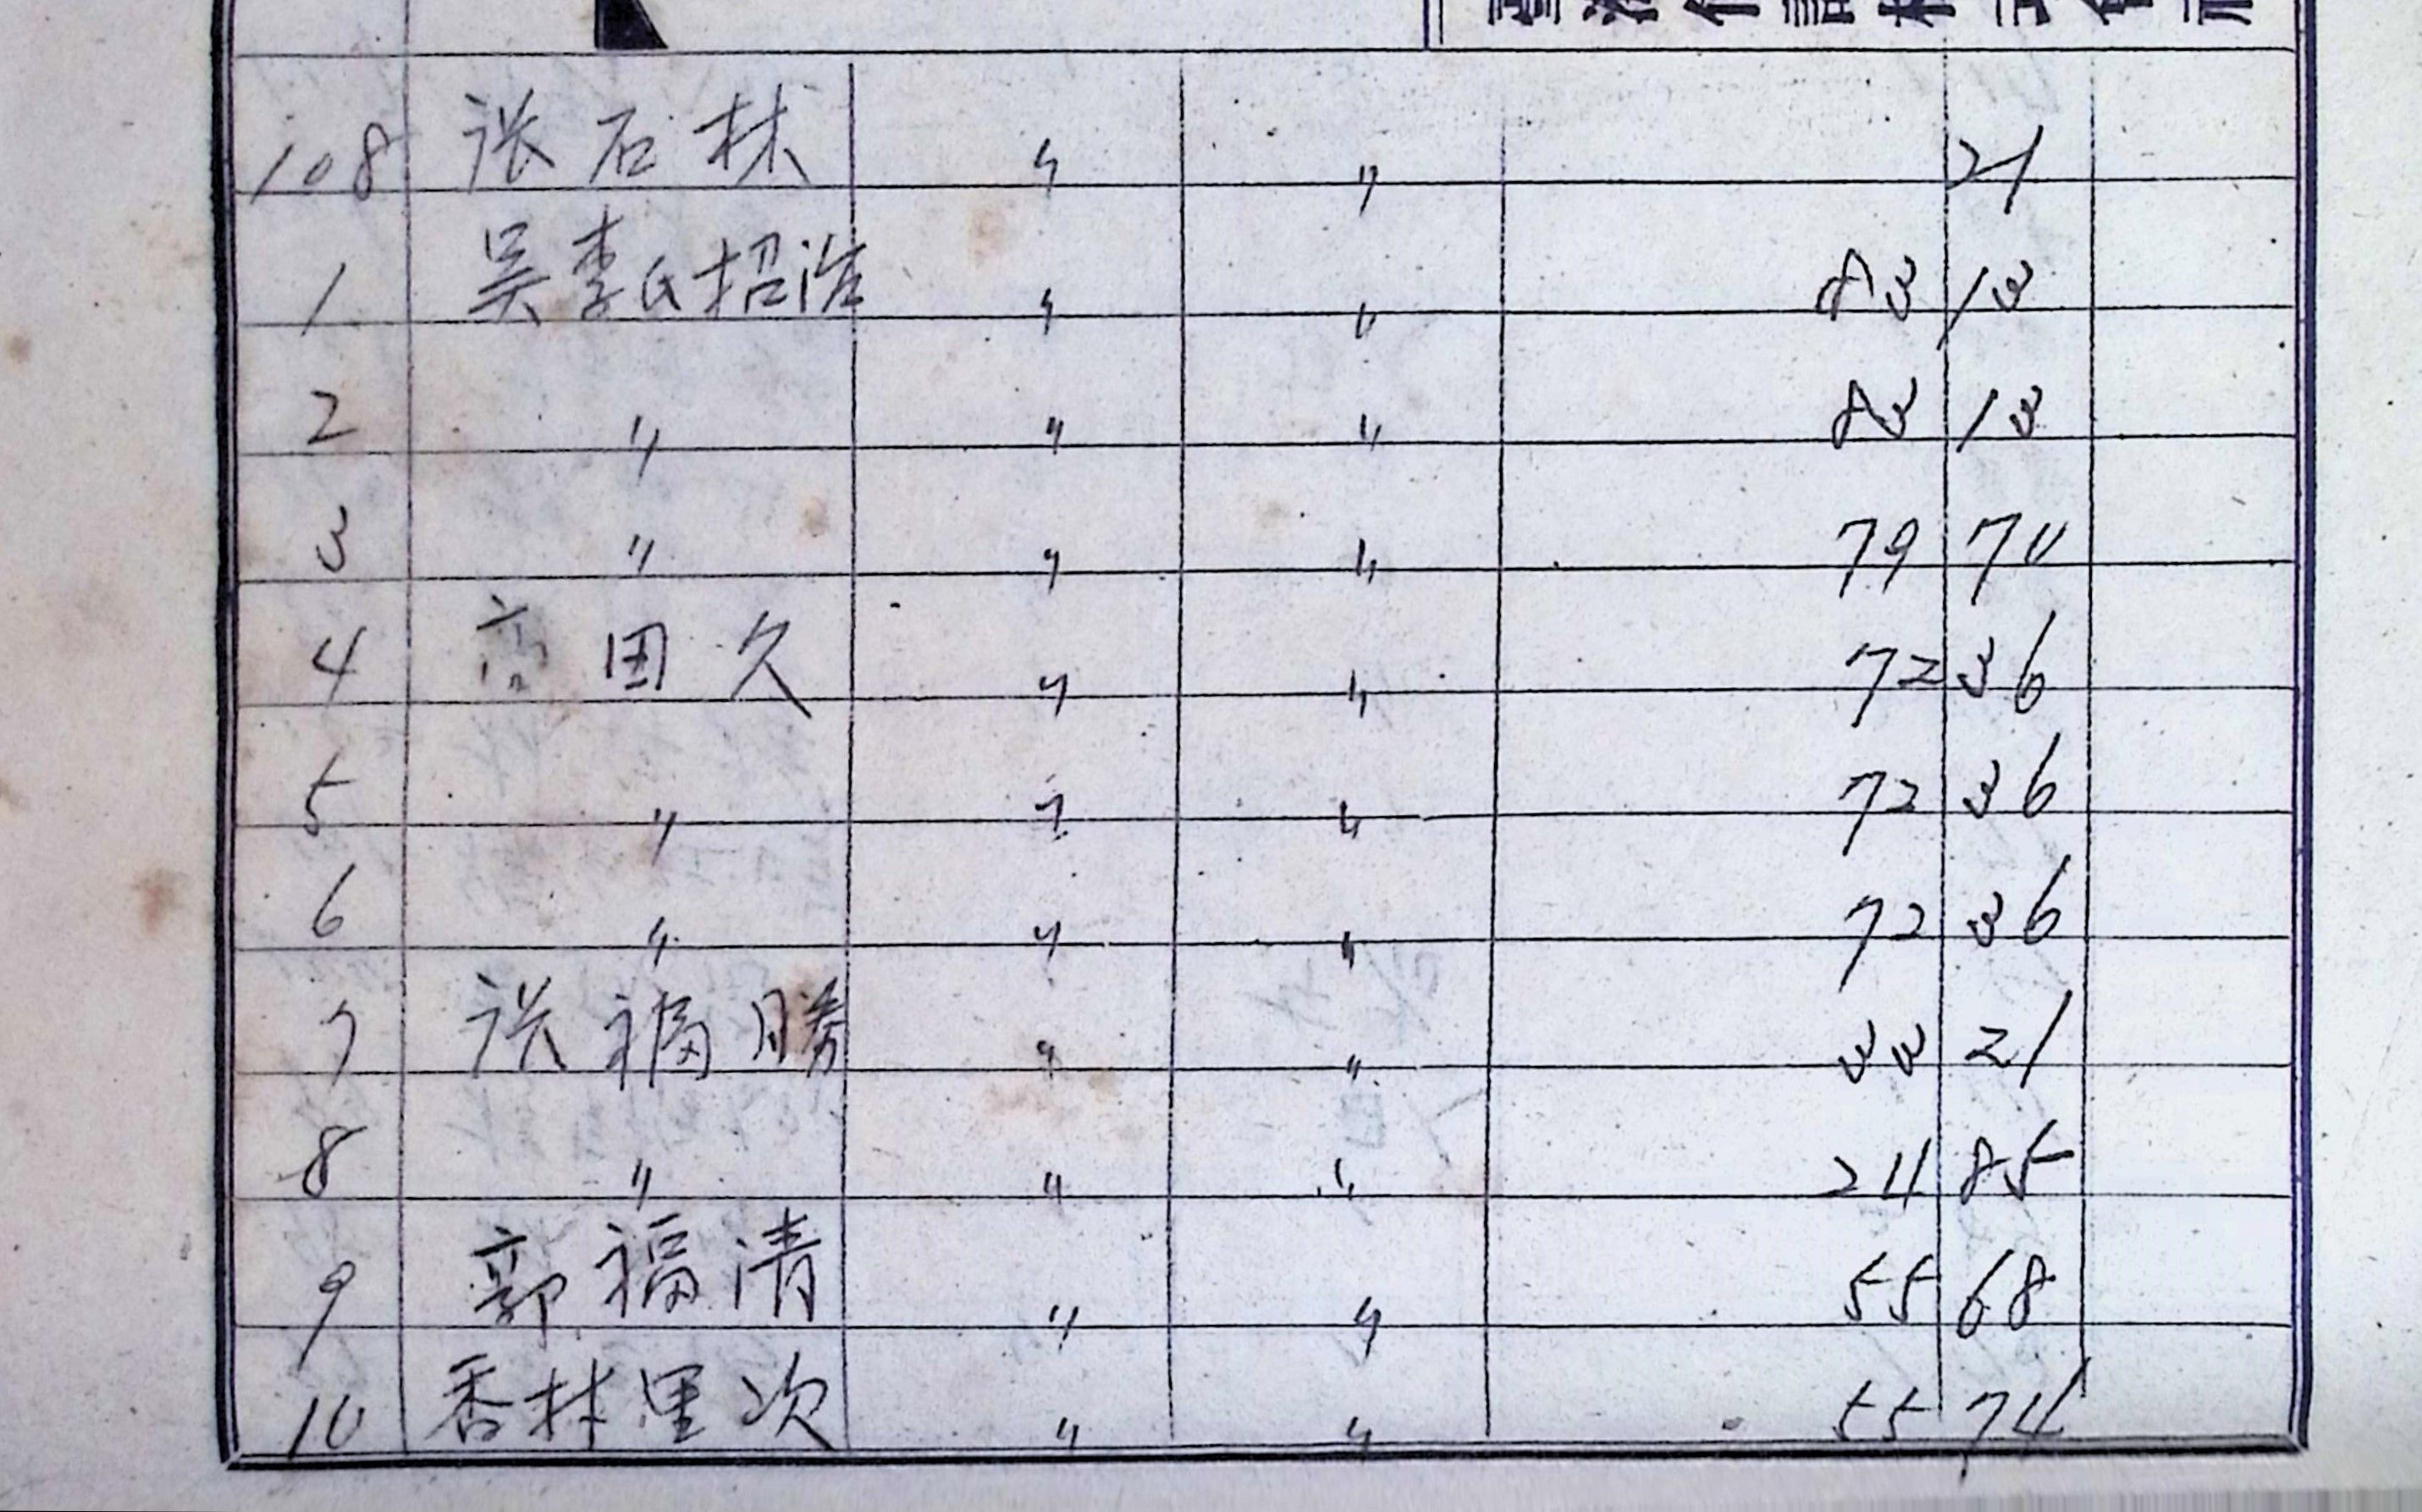 108 张石林 〃 〃 21
1 吴李氏招治 〃 〃 83 13
2 〃 〃 〃 83 13
3 〃 〃 〃 79 70
4 高田久 〃 〃 72 36
5 〃 〃 〃 72 36
6 〃 〃 〃 72 36
7 张福勝 〃 〃 33 21
8 〃 〃 〃 24 85
9 郭福清 〃 〃 55 68
10 香林里次 〃 〃 55 74